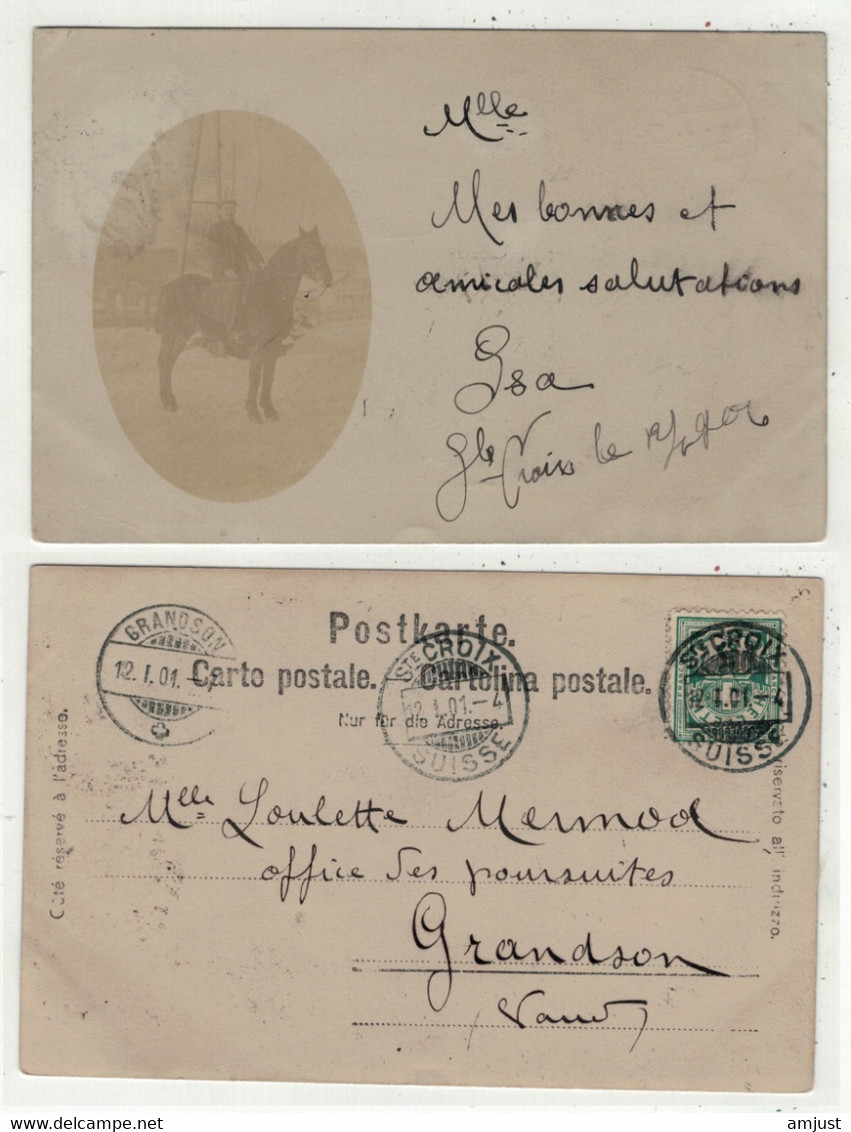 Mlle
Mes bonnes et
amicales salutations
Isa
Ste Croix le
Postkarte.
Carte postale. Cartolina postale.
Nur für die Adresse.
GRANDSON
12. I. 01.
STE CROIX
12. I. 01. - 4
SUISSE
STE CROIX
12. I. 01. - 4
SUISSE
Côté réservé à l'adresse.
riservato all' indirizzo.
Mlle Loulette Mermod
office des poursuites
Grandson
(Vaud)
delcampe.net
amjust